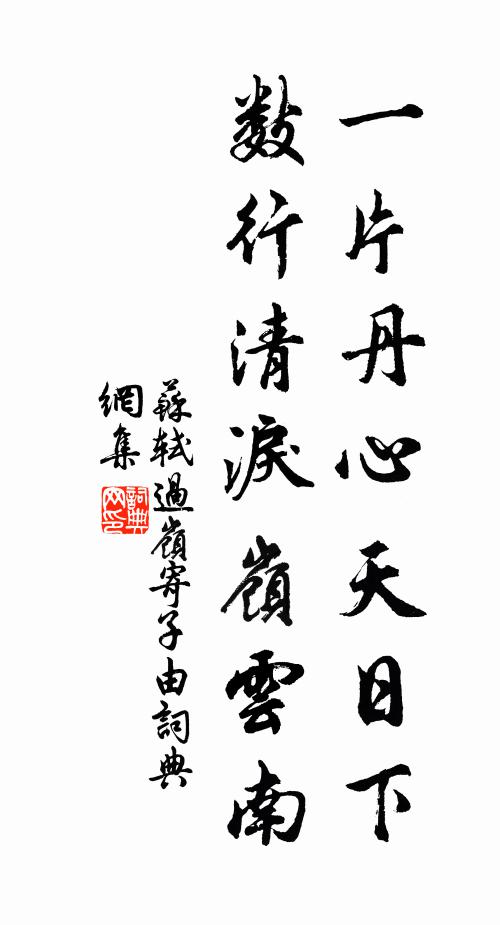 一片丹心天日下
数行清淚嶺雲南
蘇軾過嶺寄子由詞典
網集
詞典
网印